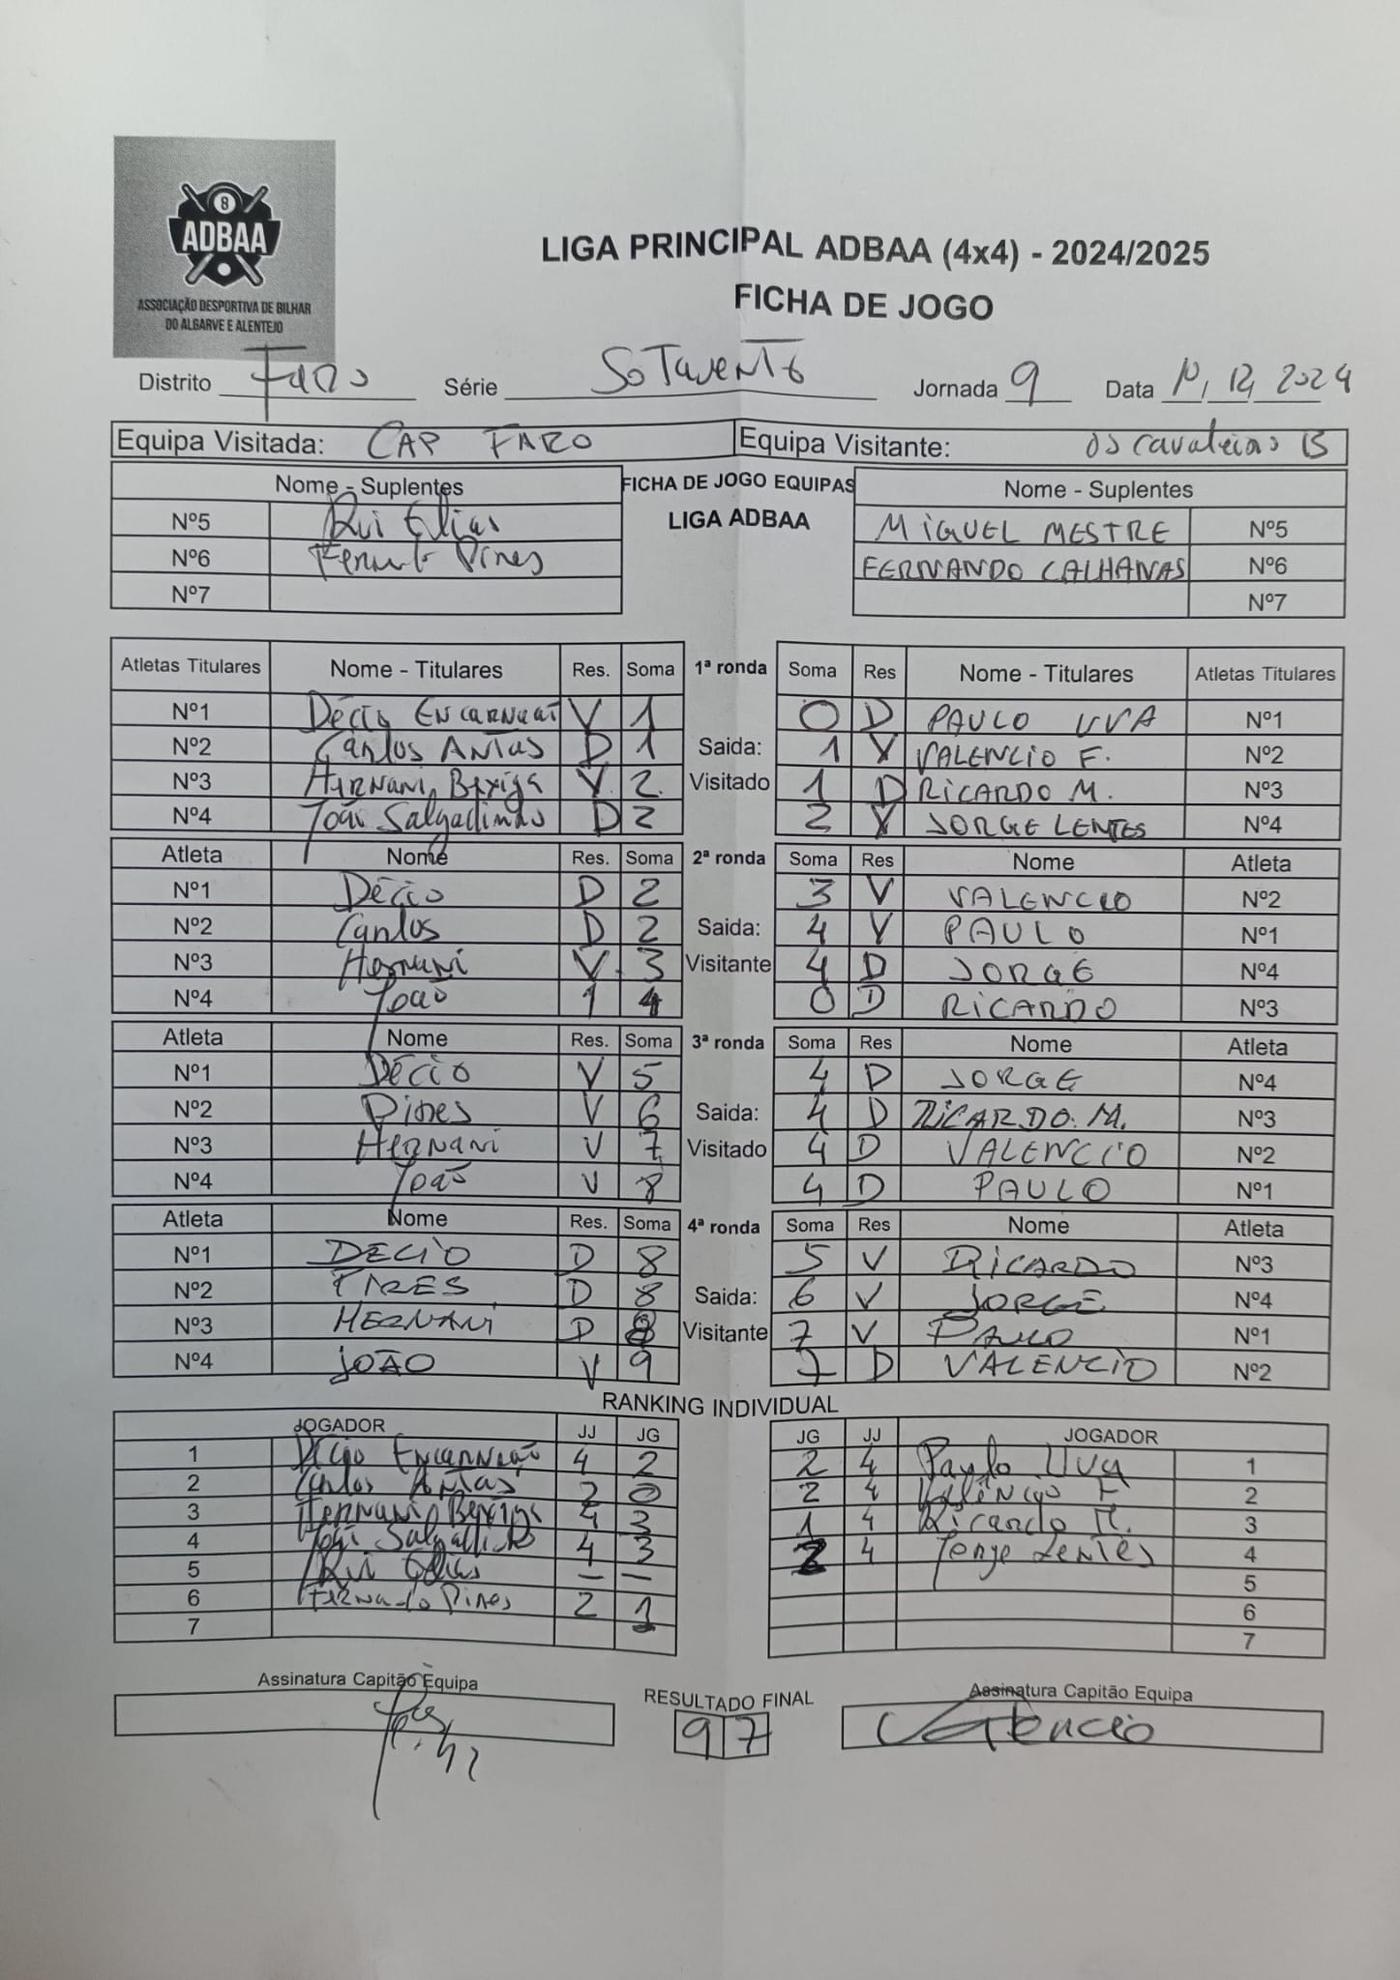 8
ADBAA
ASSOCIAÇÃO DESPORTIVA DE BILHAR
DO ALGARVE E ALENTEJO
LIGA PRINCIPAL ADBAA (4x4) - 2024/2025
FICHA DE JOGO
Distrito Faro Série Sotavento Jornada 9 Data 10, 12, 2024
Equipa Visitada: CAP FARO Equipa Visitante: os cavaleiros B
Nome - Suplentes FICHA DE JOGO EQUIPAS Nome - Suplentes
LIGA ADBAA
Nº5 Rui Elias MIGUEL MESTRE Nº5
Nº6 Pires FERNANDO CALHANAS Nº6
Nº7 Nº7
Atletas Titulares Nome - Titulares Res. Soma 1ª ronda Soma Res Nome - Titulares Atletas Titulares
Nº1 Décio Encarnação V 1 0 D PAULO UVA Nº1
Nº2 Carlos Antas D 1 Saida: 1 V VALENCIO F. Nº2
Nº3 Hernani Bexiga V 2 Visitado 1 D RICARDO M. Nº3
Nº4 João Salgadinho D 2 2 V JORGE LENTES Nº4
Atleta Nome Res. Soma 2ª ronda Soma Res Nome Atleta
Nº1 Décio D 2 3 V VALENCIO Nº2
Nº2 Carlos D 2 Saida: 4 V PAULO Nº1
Nº3 Hernani V 3 Visitante 4 D JORGE Nº4
Nº4 João 1 4 0 D RICARDO Nº3
Atleta Nome Res. Soma 3ª ronda Soma Res Nome Atleta
Nº1 DÉCIO V 5 4 D JORGE Nº4
Nº2 Pires V 6 Saida: 4 D RICARDO. M. Nº3
Nº3 HERNANI V 7 Visitado 4 D VALENCIO Nº2
Nº4 João V 8 4 D PAULO Nº1
Atleta Nome Res. Soma 4ª ronda Soma Res Nome Atleta
Nº1 DECIO D 8 5 V RICARDO Nº3
Nº2 PIRES D 8 Saida: 6 V JORGE Nº4
Nº3 HERNANI D 8 Visitante 7 V PAULO Nº1
Nº4 JOÃO V 9 7 D VALENCIO Nº2
RANKING INDIVIDUAL
JOGADOR JJ JG JG JJ JOGADOR
1 Décio Encarnação 4 2 2 4 Paulo Uva 1
2 Carlos Antas 2 0 2 4 Valêncio F 2
3 Hernani Bexiga 4 3 1 4 Ricardo M. 3
4 João Salgadinho 4 3 2 4 Jorge Lentes 4
5 Rui Elias — — 5
6 Fernando Pires 2 1 6
7 7
Assinatura Capitão Equipa RESULTADO FINAL Assinatura Capitão Equipa
9 7 Valencio